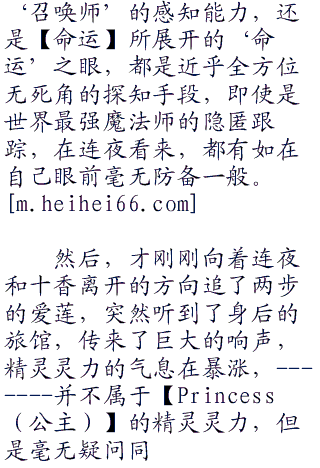 ‘召唤师’的感知能力，还
是【命运】所展开的‘命
运’之眼，都是近乎全方位
无死角的探知手段，即使是
世界最强魔法师的隐匿跟
踪，在连夜看来，都有如在
自己眼前毫无防备一般。
[m.heihei66.com]
然后，才刚刚向着连夜
和十香离开的方向追了两步
的爱莲，突然听到了身后的
旅馆，传来了巨大的响声，
精灵灵力的气息在暴涨，---
----并不属于【Princess
（公主）】的精灵灵力，但
是毫无疑问同